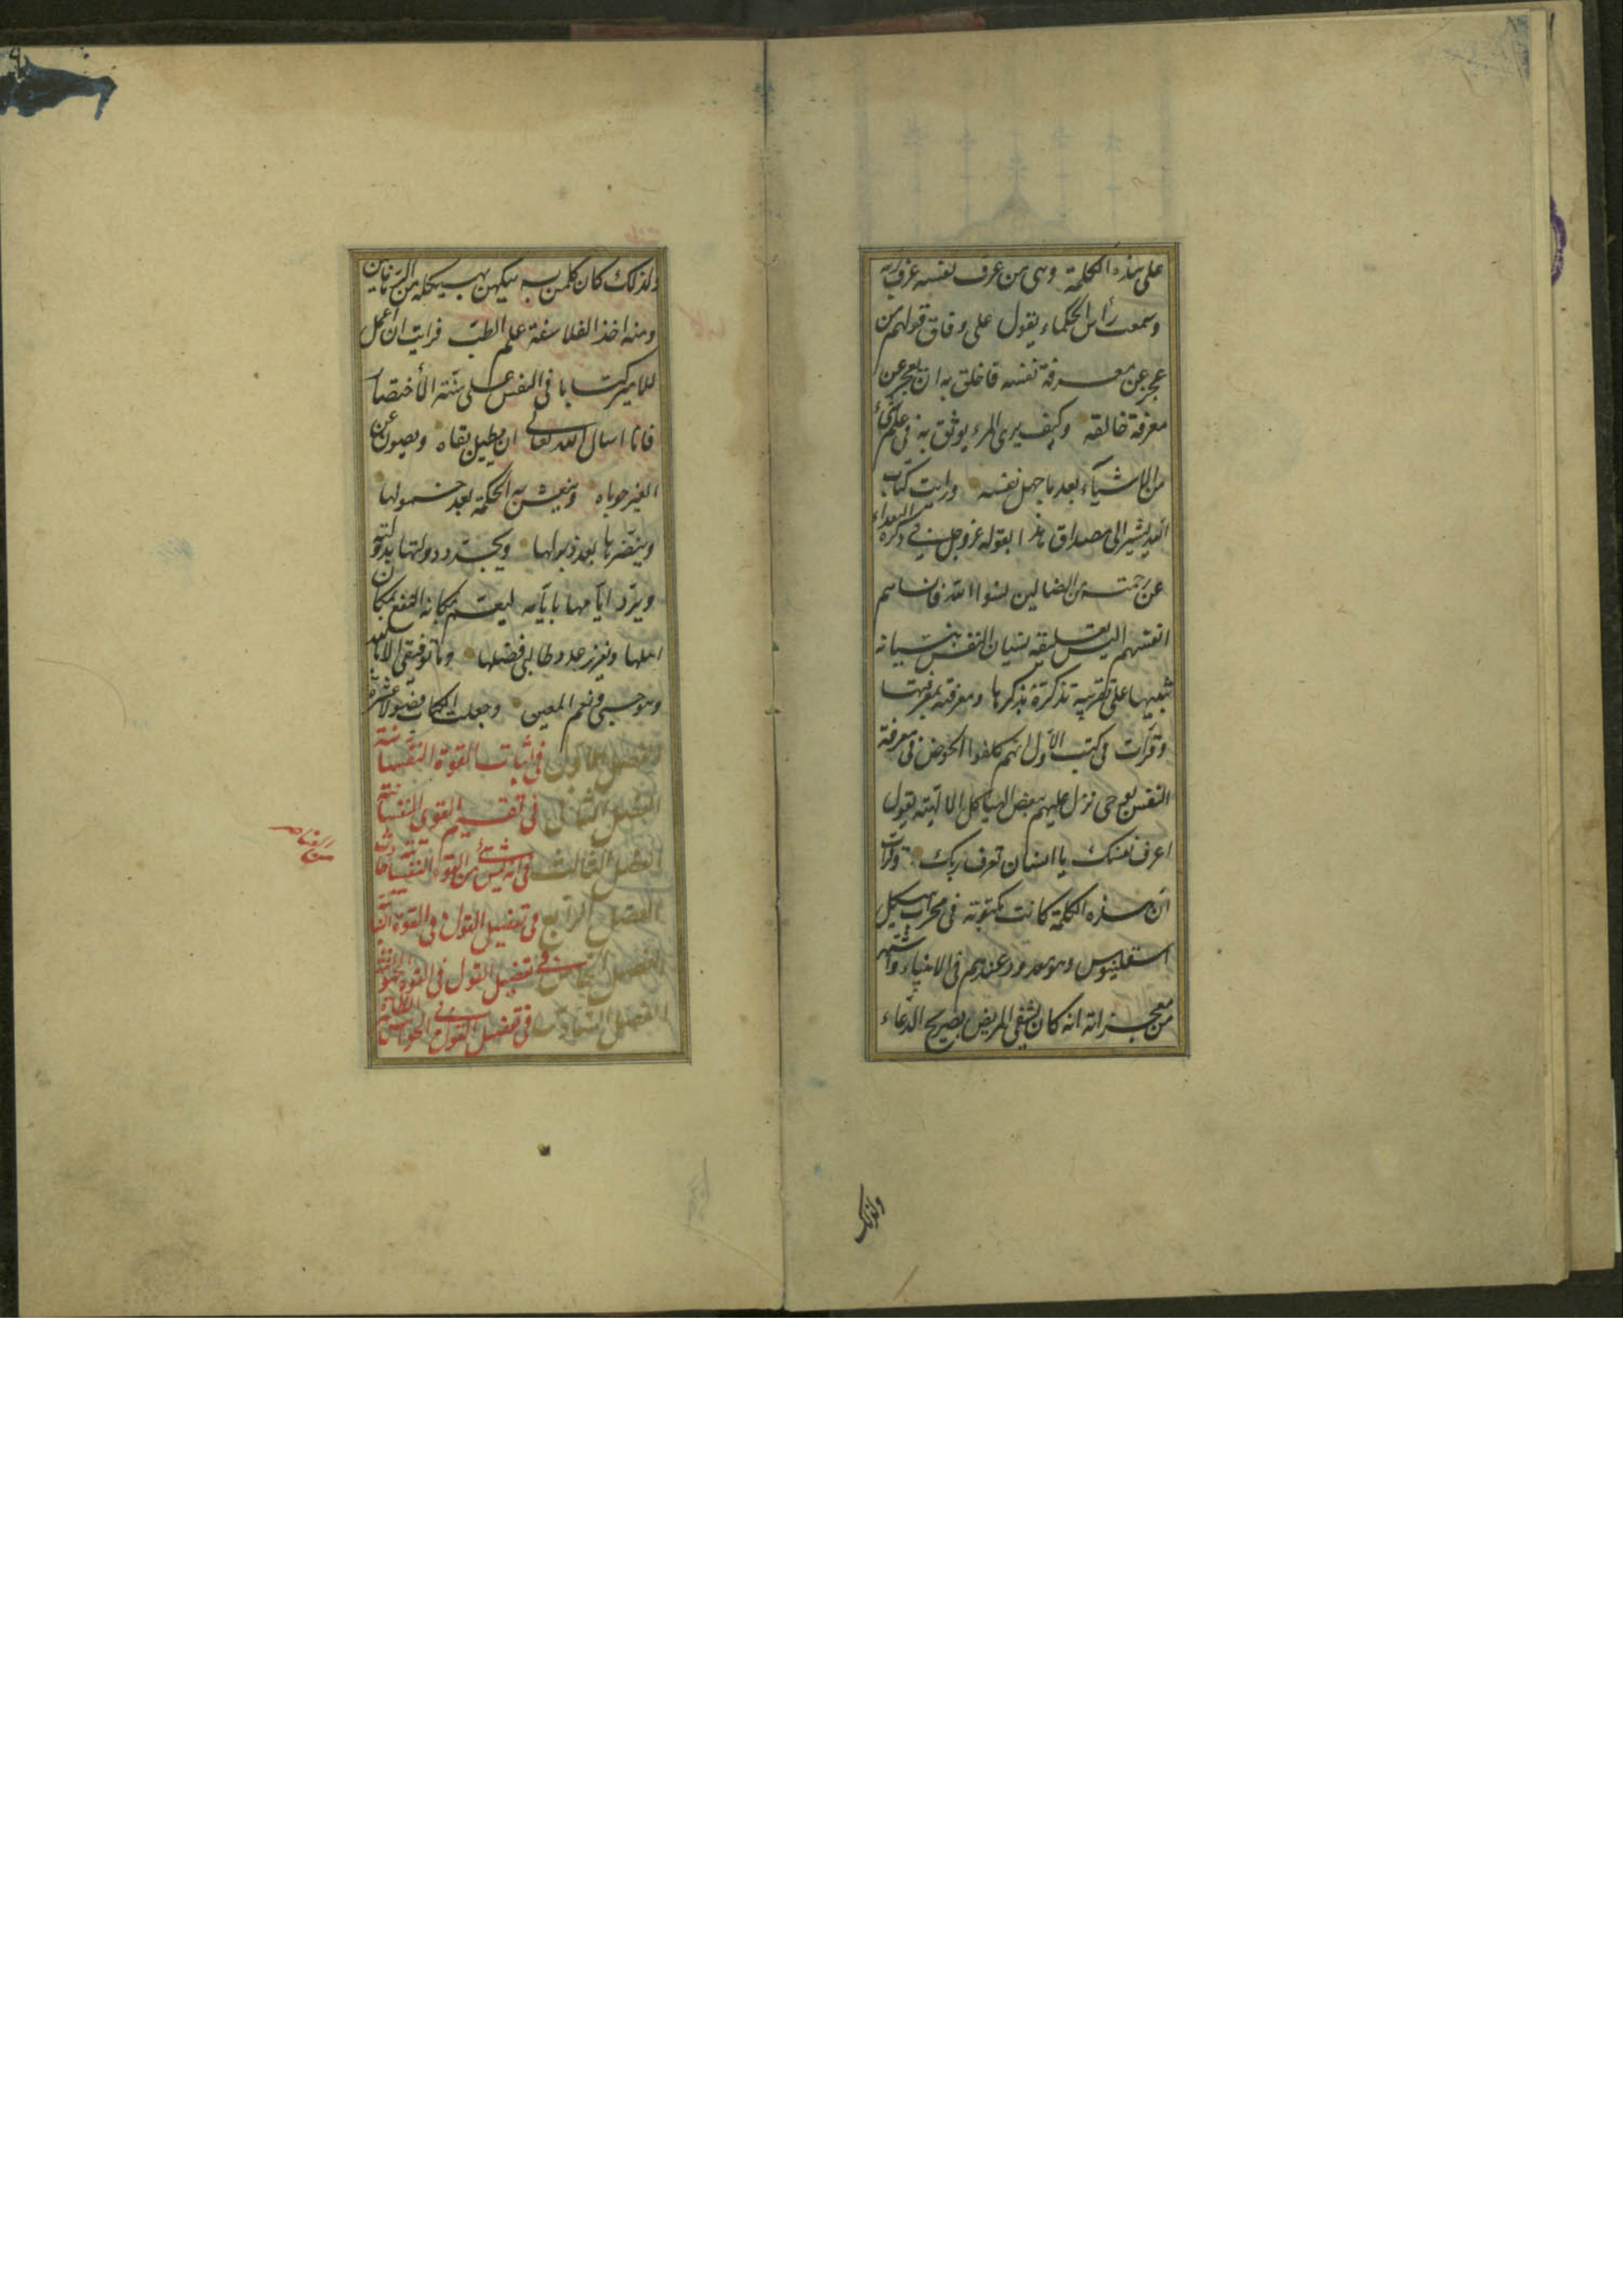 على هذه الكلمة وهى من عرف نفسه عرف ربه
وسمعت رأس الحكماء يقول على وفاق قولهم من
عجز عن معرفة نفسه فاخلق به ان يعجز عن
معرفة خالقه وكيف يرى المرء يوثق به فى علم شئ
من الاشياء بعد ما جهل نفسه ورايت كتاب
الله يشير الى مصداق هذا بقوله عز وجل فى ذكره البعداء
عن رحمته من الضالين نسوا الله فانساهم
انفسهم اليس تعليقه نسيان النفس بنسيانه
تنبيها على تقريبه تذكره بذكرها ومعرفته بمعرفتها
وقرأت فى كتب الاول انهم كلفوا الخوض فى معرفة
النفس لوحى نزل عليهم ببعض الهياكل الالهية يقول
اعرف نفسك يا انسان تعرف ربك وقرأت
ان هذه الكلمة كانت مكتوبة فى محراب هيكل
اسقلبيوس وهو معدود عندهم فى الانبياء واشتهر
من معجزاته انه كان يشفى المريض بصريح الدعاء
ولذلك
ولذلك كان كلمن يتكهن بهيكله من الرهابين
ومنه اخذ الفلاسفة علم الطب فرايت ان اعمل
للامير كتابا فى النفس على سنة الأختصار
فانا اسال الله تعالى ان يطيل بقاه ويصون عن
الغير حوباه وينعش به الحكمة بعد خمولها
وينضرها بعد ذبولها ويجدد دولتها بدولته
ويرد ايامها بايامه ليعم بمكانه النفع بمكان
اهلها ويغزر عدد طالبى فضلها وما توفيقى الا بالله
وهو حسبى ونعم المعين وجعلت الكتاب فصولا عشرة
الفصل الاول فى اثبات القوة النفسانية
الفصل الثانى فى تقسيم القوى النفسانية
الفصل الثالث فى انه ليس شئ من القوة النفسانية حادث
الفصل الرابع فى تفصيل القول فى القوة النباتية
الفصل الخامس فى تفصيل القول فى القوة الحيوانية
الفصل السادس فى تفصيل القول فى الحواس الظاهرة